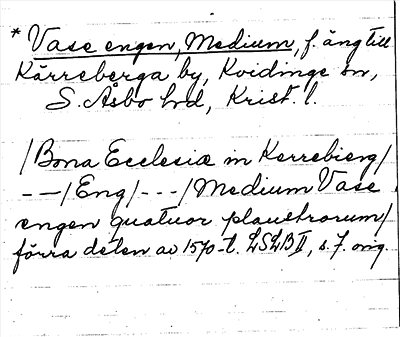 * Vase engen, Medium, f. äng till
Kärreberga by, Kvidinge sn,
S. Åsbo hd, Krist. l.
/Bona Ecclesiæ in Kerrebierg/
--/Eng/---/Medium Vase
engen quatuor plaustrorum/
förra delen av 1570-t. LSLB II, s. 7. orig.